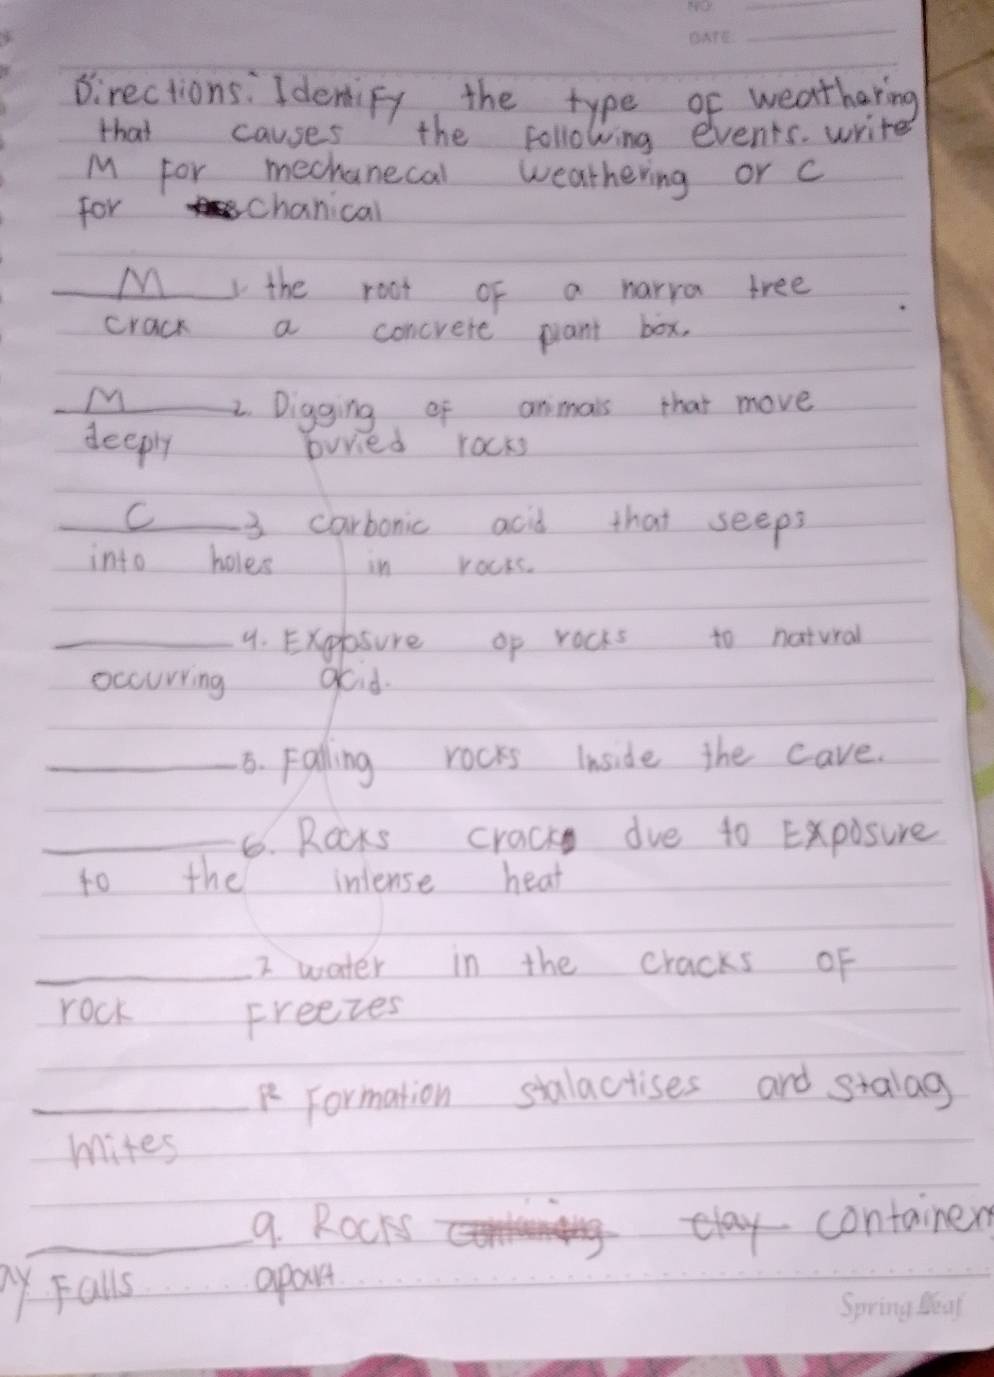 NO
DATE.
Directions: Identify the type of weatharing
that causes the following events. write
M for mechanecal weathering or C
for chanical
M 1. the root of a narra tree
crack a concrete plant box.
M 2. Digging of animals that move
deeply buried rocks
C 3 carbonic acid that seeps
into holes in rocks.
4. Exposure op rocks to natural
occurring acid.
5. Falling rocks Inside the cave.
6. Rocks cracks due to Exposure
to the intense heat
7 water in the cracks of
rock Freezes
Formation stalactises and stalag
mites
9. Rocks clay container
ay Falls apart
Spring Leaf